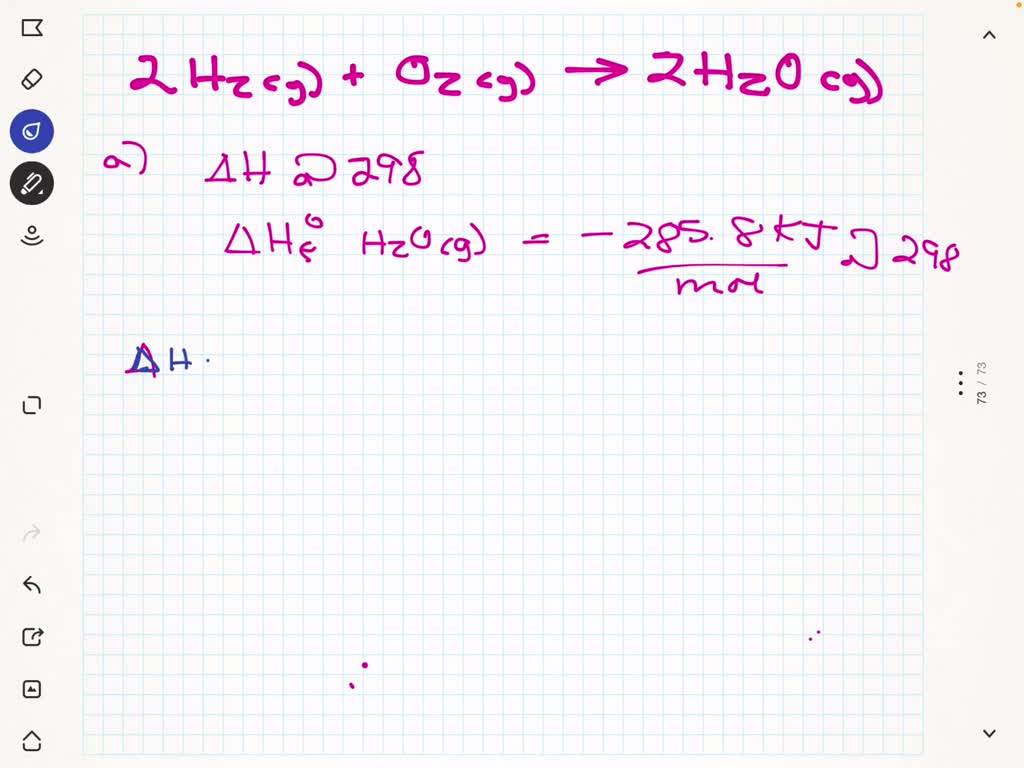 2H2(g) + O2(g) → 2H2O(g)
a) ΔH @ 298
ΔHf° H2O(g) = -285.8 kJ/mol @ 298
ΔH
73 / 73